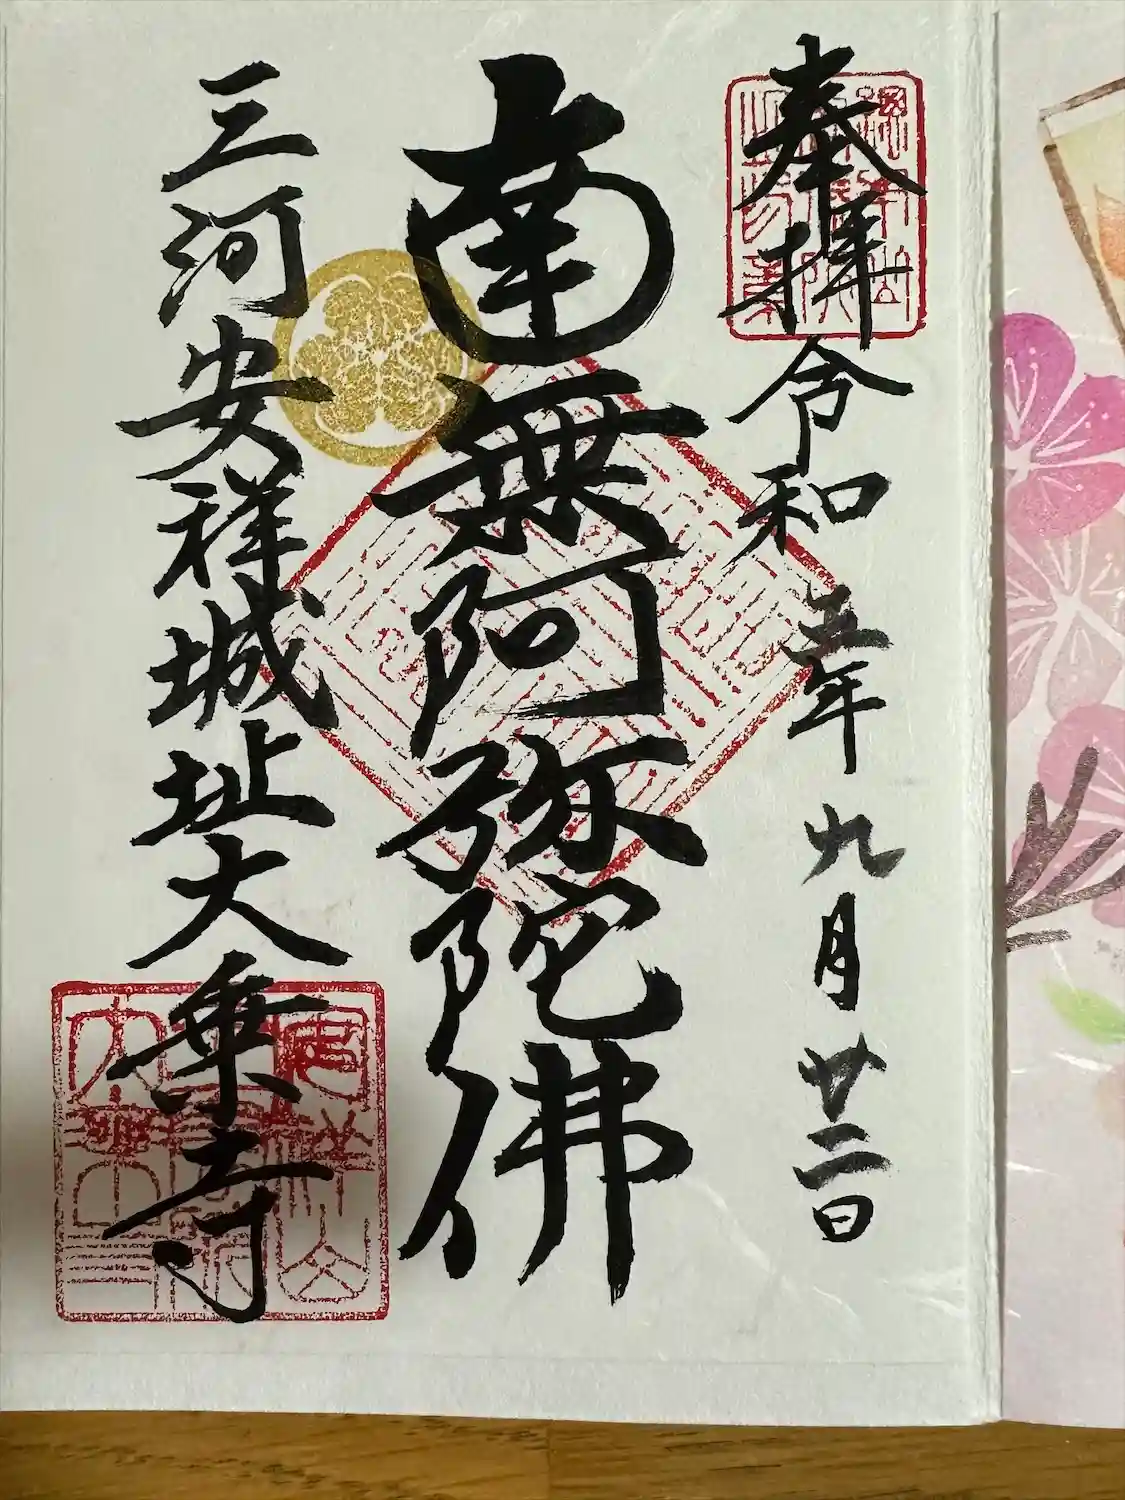 奉拝 令和五年九月廿二日
南無阿弥陀佛
三河安祥城址大乗寺